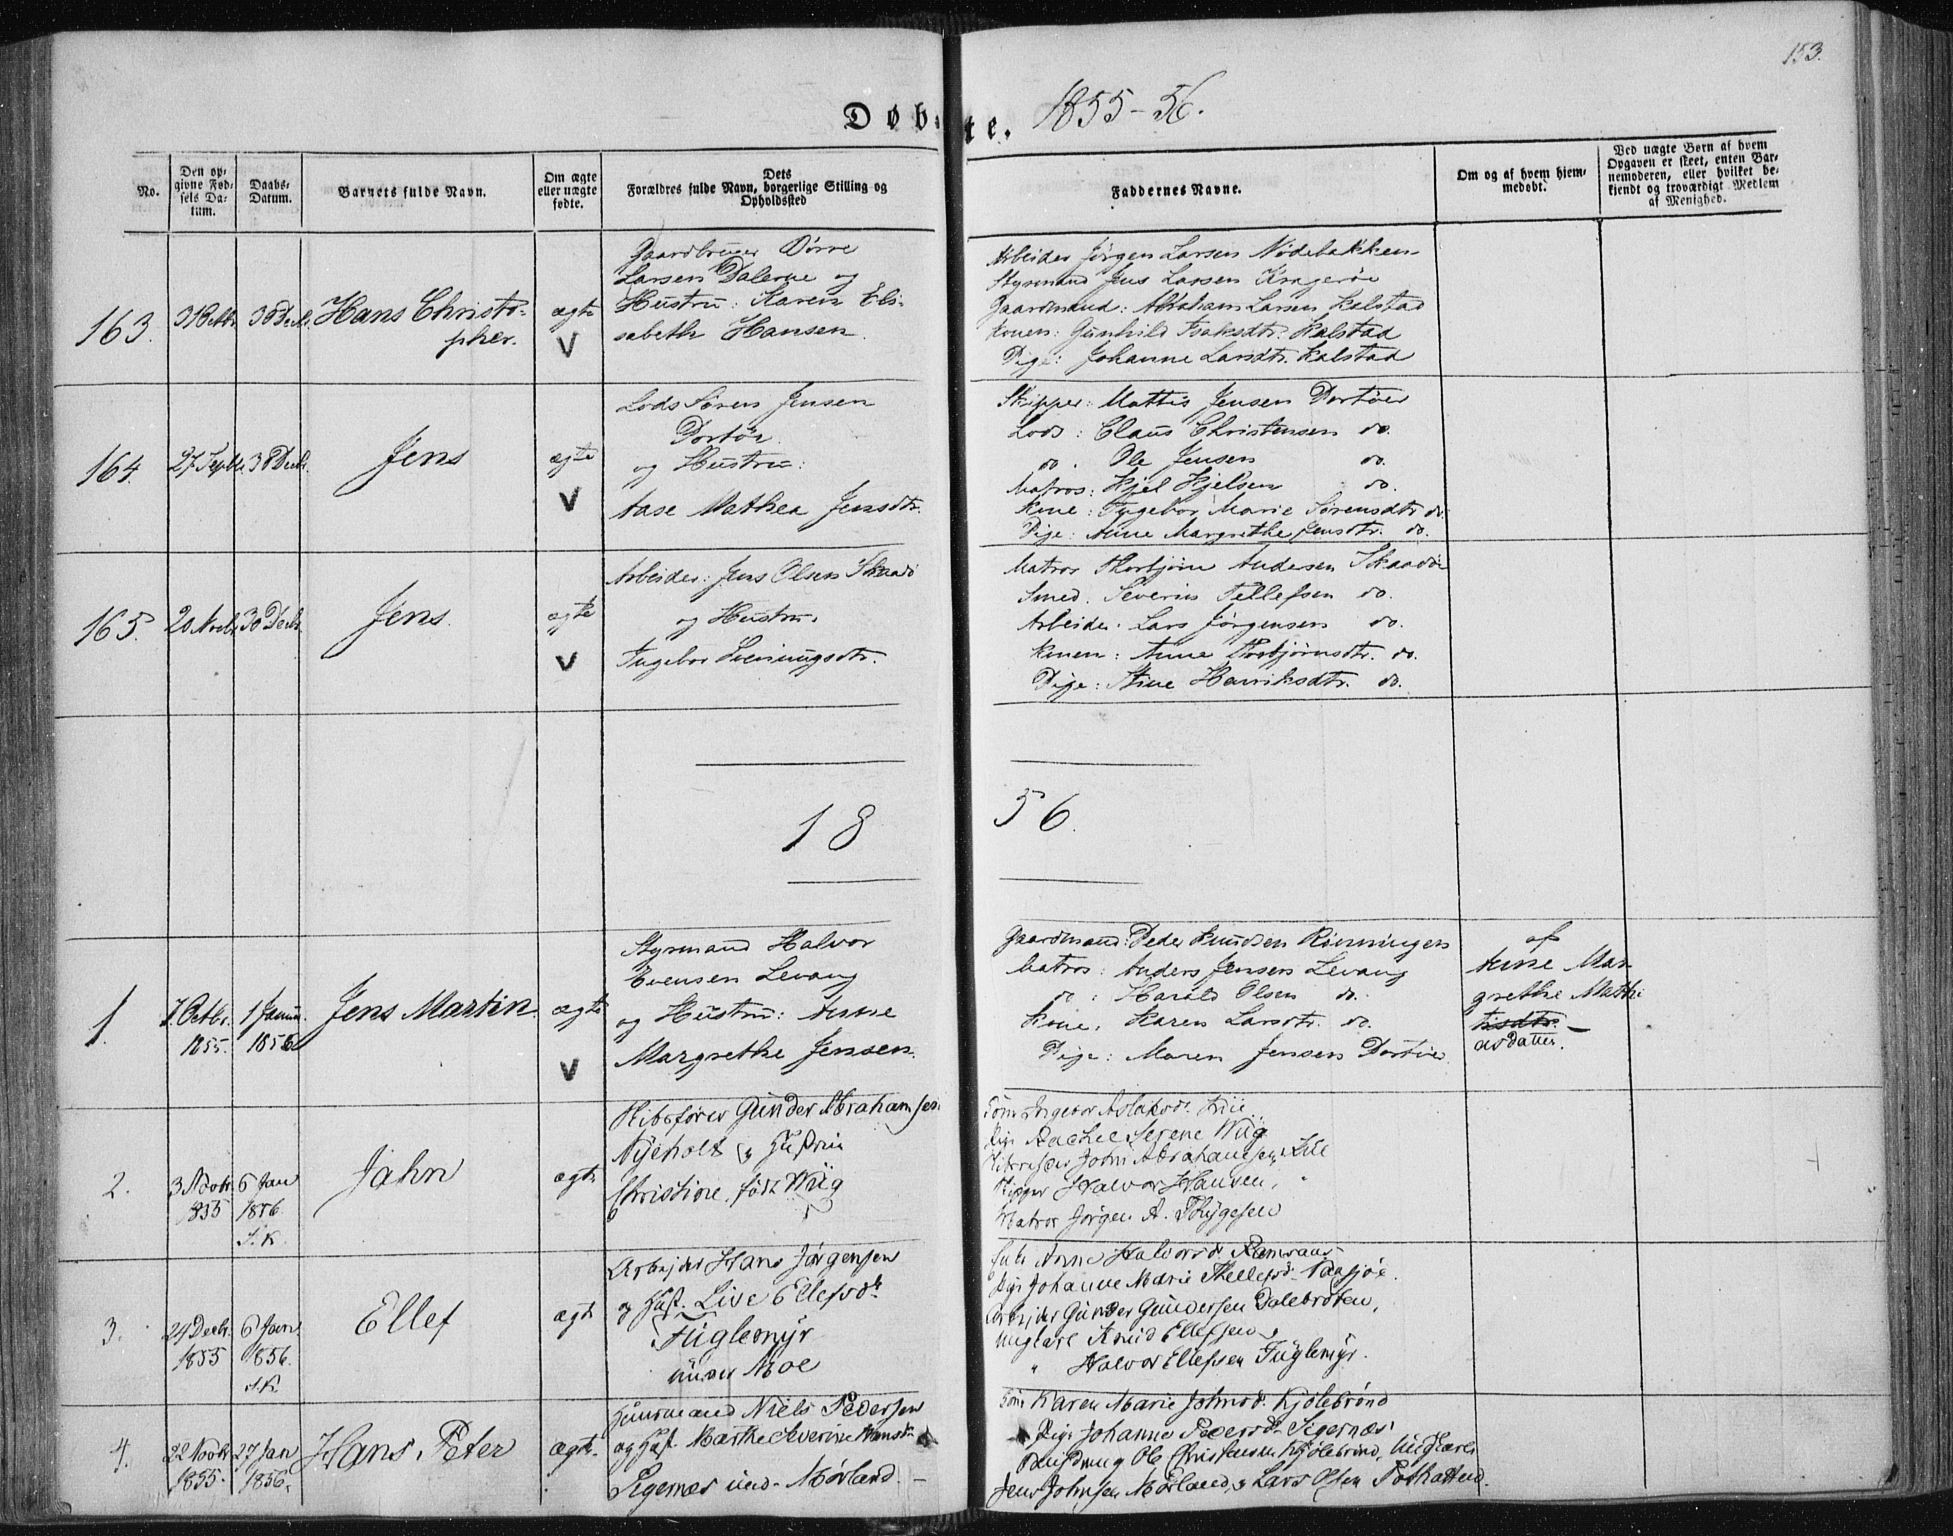 153.
Døbte. 1855-56.
No.
Den opgivne Fødsels Datum.
Daabs-Datum.
Barnets fulde Navn.
Om ægte eller uægte fødte.
Dets Forældres fulde Navn, borgerlige Stilling og Opholdssted
Faddernes Navne.
Om og af hvem hjemmedøbt.
Ved uægte Børn af hvem Opgaven er skeet, enten Barnemoderen, eller hvilket bekjendt og troværdigt Medlem af Menighed.
163.
30 Decbr.
Hans Christopher.
ægte
V
Gaardbruger
Larsen Dalene og
Hustru: Karen Elisabeth Hansen.
Arbeider Jörgen Larsen Nødebakken
Styrmand Jens Larsen Kragerøe
Gaardmand: Abraham Larsen Kalstad
Konen: Gunhild Isaksdtr. Kalstad
Pige: Johanne Larsdtr. Kalstad
164.
27 Septbr.
30 Decbr.
Jens
ægte
V
Lods Sören Jensen
Portör
og Hustru:
Aase Mathea Jensdtr.
Skipper: Mattis Jensen Portöer
Lods: Claus Christensen do.
do. Ole Jensen do.
Matros: Kjel Kjelsen do.
Kone: Ingebor Marie Sörensdtr do.
Pige: Anne Margrethe Jensdtr. do.
165.
20 Novbr.
30 Decbr.
Jens.
ægte
V
Arbeider: Jens Olsen Skaadö
og Hustru,
Ingebor
Matros Thorbjörn Andersen Skaadöe
Smed. Severin Tellefsen do.
Arbeider. Lars Jörgensen do.
Konen: Anne Thorbjörnsdtr. do.
Pige: Stine Henriksdtr. do.
18 56.
1.
7. Octbr. 1855.
1 Januar 1856
Jens Martin.
ægte
V
Styrmand Halvor
Evensen Levang
og Hustru: Anne
Margrethe Jensen.
Gaardmand: Peder Knudsen Rönningen
Matros: Anders Jensen Levang
do: Harald Olsen do.
Kone: Karen Larsdtr. do.
Pige: Maren Jensen Portöer
af
Anne Margrethe Mathiasdatter.
2.
3 Novbr. 1855
6 Jan 1856
S.K.
Jahn
ægte
Skibsfører Gunder Abrahamsen
Nyeholt og Hustrue
Christine, født Wiig
Kone Ingebor Aslaksdr.
Pige Rachel Serene Wiig
John Abrahamsen
Skipper Halvor Hansen, "
Matros Jörgen A. Thygesen
3.
24 Decbr. 1855
6 Jan 1856.
S.K.
Ellef
ægte
Arbejder Hans Jørgensen
og Hust. Live Ellefsdr
Fuglemyr
under Moe
Anne Halvorsdr
Pige Johanne Marie Thellefsdr
Arbejder Gunder Gundersen Dalebråten,
Ungkarl Ellefsen,
" Halvor Ellefsen Fuglemyr.
4.
22 Novbr 1855.
27 Jan 1856.
Hans Peter
ægte.
Huusmand Niels Pedersen
og Hust. Marthe Severine
Sigernæs und. Mørland.
Kone Karen Marie Johnsdr. Kjölebrönd
Pige Johanne Pedersdr Sigernæs
Ole Christensen Kjölebrönd, Ungkarl
Jens Johnsen Mörland, og Lars Olsen